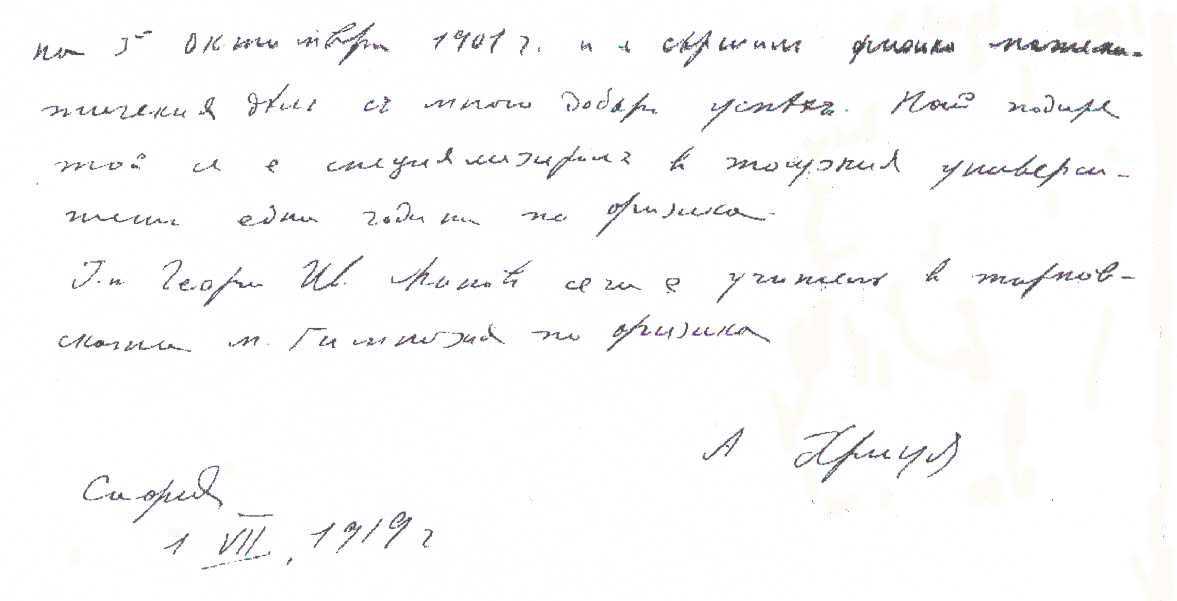 на 5 Октомври 1901 г. и я свършил физико матема-
тическия дѣлъ съ много добъръ успѣхъ. Най подиръ
той се е специялизиралъ в университ-
един година по физика.
Г-н Георги Ив. сега е учитель в търнов-
ската м. Гимназия по физика
А
София
1 VII, 1919 г